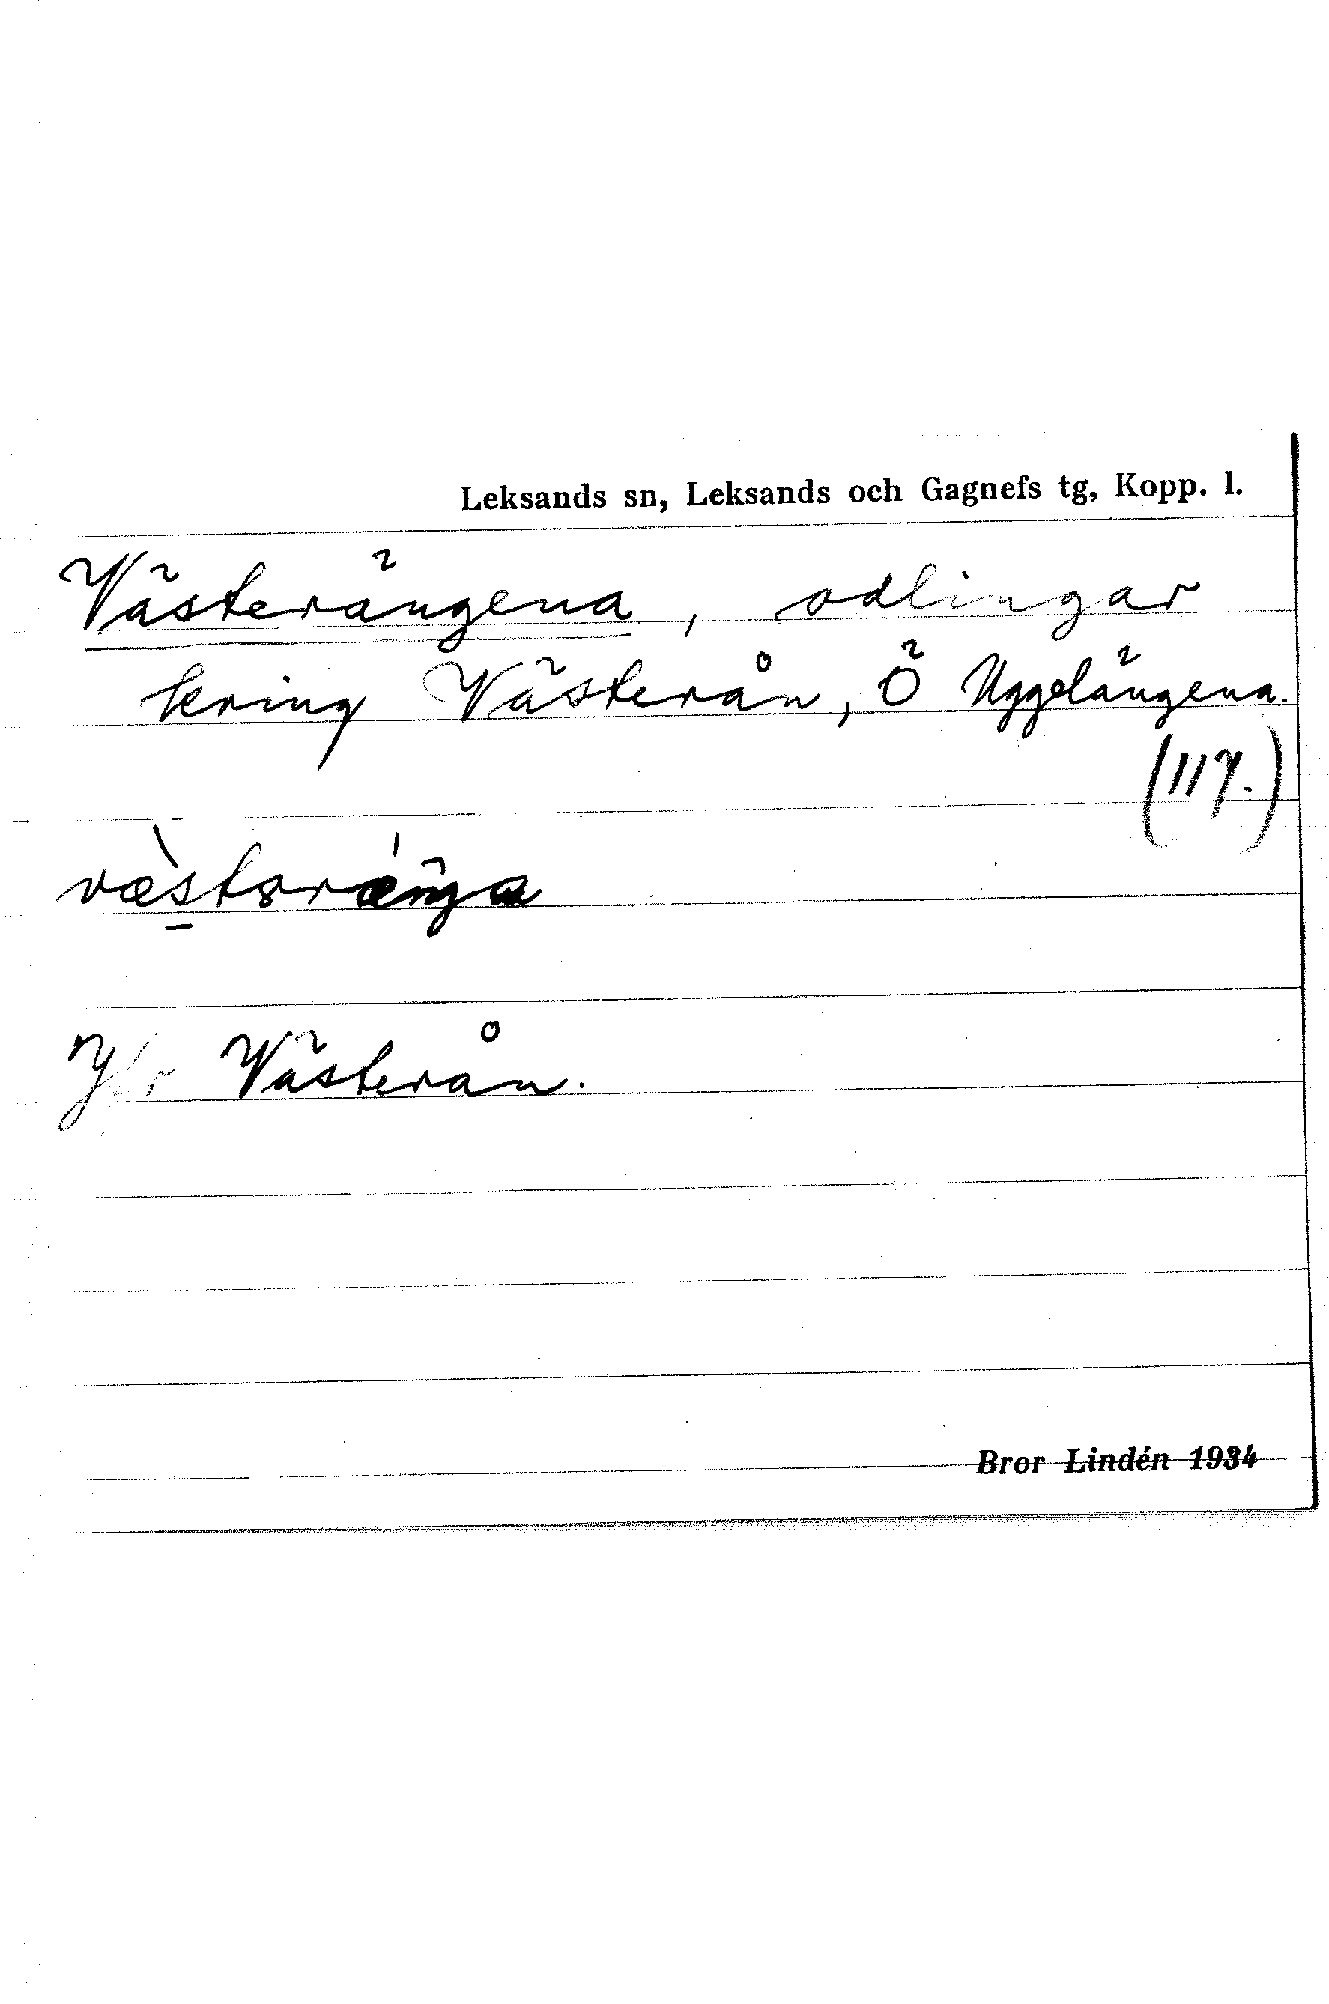 Leksands sn, Leksands och Gagnefs tg, Kopp. l.
Västerängena, odlingar
kring Västerån, Ö Uggelängena.
(117.)
væ̀stərǽŋa
Jfr Västerån.
Bror Lindén 1934